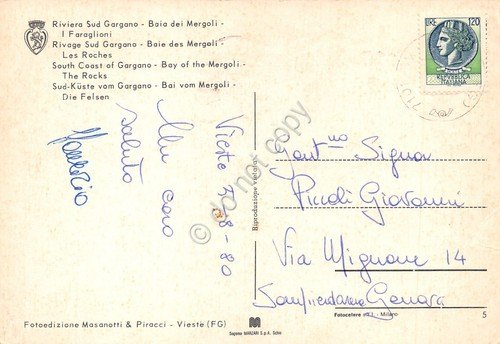 Riviera Sud Gargano - Baia dei Mergoli -
I Faraglioni
Rivage Sud Gargano - Baie des Mergoli -
Les Roches
South Coast of Gargano - Bay of the Mergoli -
The Rocks
Süd-Küste vom Gargano - Bai vom Mergoli -
Die Felsen
LIRE 120
REPUBBLICA
ITALIANA
Vieste 3-8-80
Un caro
saluto
Maurizio
Gent.mo Signor
Piccoli Giovanni
Via Mignone 14
Sampierdarena Genova
Riproduzione vietata
do not copy
Fotoedizione Masanotti & Piracci - Vieste (FG)
Sagene MARZARI S.p.A. Schio
Fotocelere - Milano
5